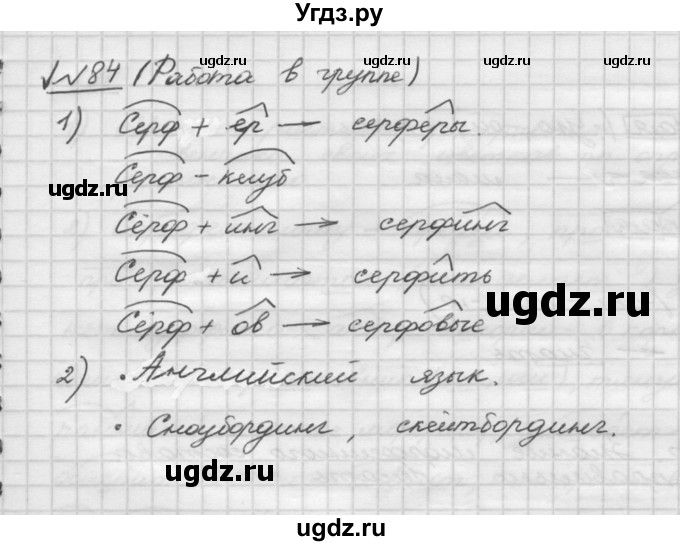 Угдз.ру
№84 (Работа в группе)
1) Серф + ер → серферы.
Серф - клуб
Серф + инг → серфинг
Серф + и → серфить
Серф + ов → серфовые
2) • Английский язык.
• Сноубординг, скейтбординг.
ugdz.ru
ugdz.ru
ugdz.ru
ugdz.ru
ugdz.ru
ugdz.ru
ugdz.ru
ugdz.ru
ugdz.ru